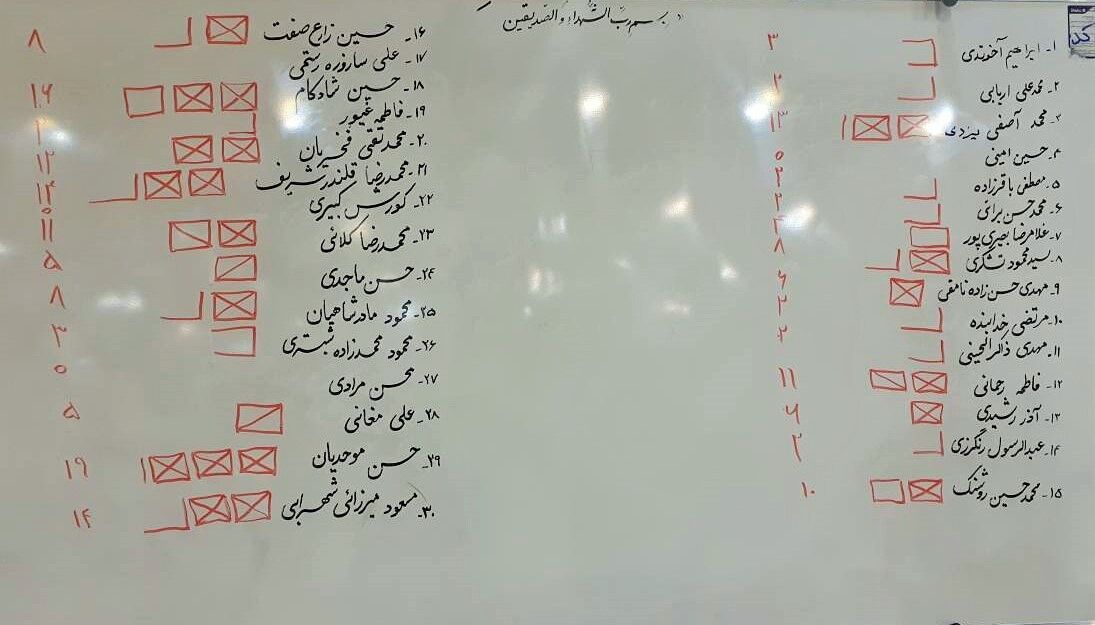 بسم رب الشهداء و الصدیقین
۱- ابراهیم آخوندی ۳
۲- محمدعلی اربابی ۲
۳- محمد آصفی یزدی ۱۳
۴- حسین امینی ۰
۵- مصطفی باقرزاده ۲
۶- محمدحسن براتی ۲
۷- غلامرضا بصیری پور ۴
۸- سید محمود تشکری ۸
۹- مهدی حسن زاده نامقی ۶
۱۰- مرتضی خدابنده ۲
۱۱- مهدی ذاکرالحینی ۲
۱۲- فاطمه رحمانی ۱۱
۱۳- آذر رشیدی ۶
۱۴- عبدالرسول رنگرزی ۲
۱۵- محمدحسین روشنک ۱۰
۱۶- حسین زارع صفت ۸
۱۷- علی ساروزه رستمی
۱۸- حسین شادکام ۱۶
۱۹- فاطمه غیور ۲
۲۰- محمدتقی فخریان ۱۲
۲۱- محمدرضا قلندر شریف ۱۴
۲۲- کورس کبیری ۰
۲۳- محمدرضا کلائی ۱۱
۲۴- حسن ماجدی ۵
۲۵- محمود مادرشاهیان ۸
۲۶- محمود محمدزاده شبستری ۳
۲۷- محسن مرادی ۰
۲۸- علی مغانی ۵
۲۹- حسن موحدیان ۱۹
۳۰- مسعود میرزائی شهرابی ۱۴